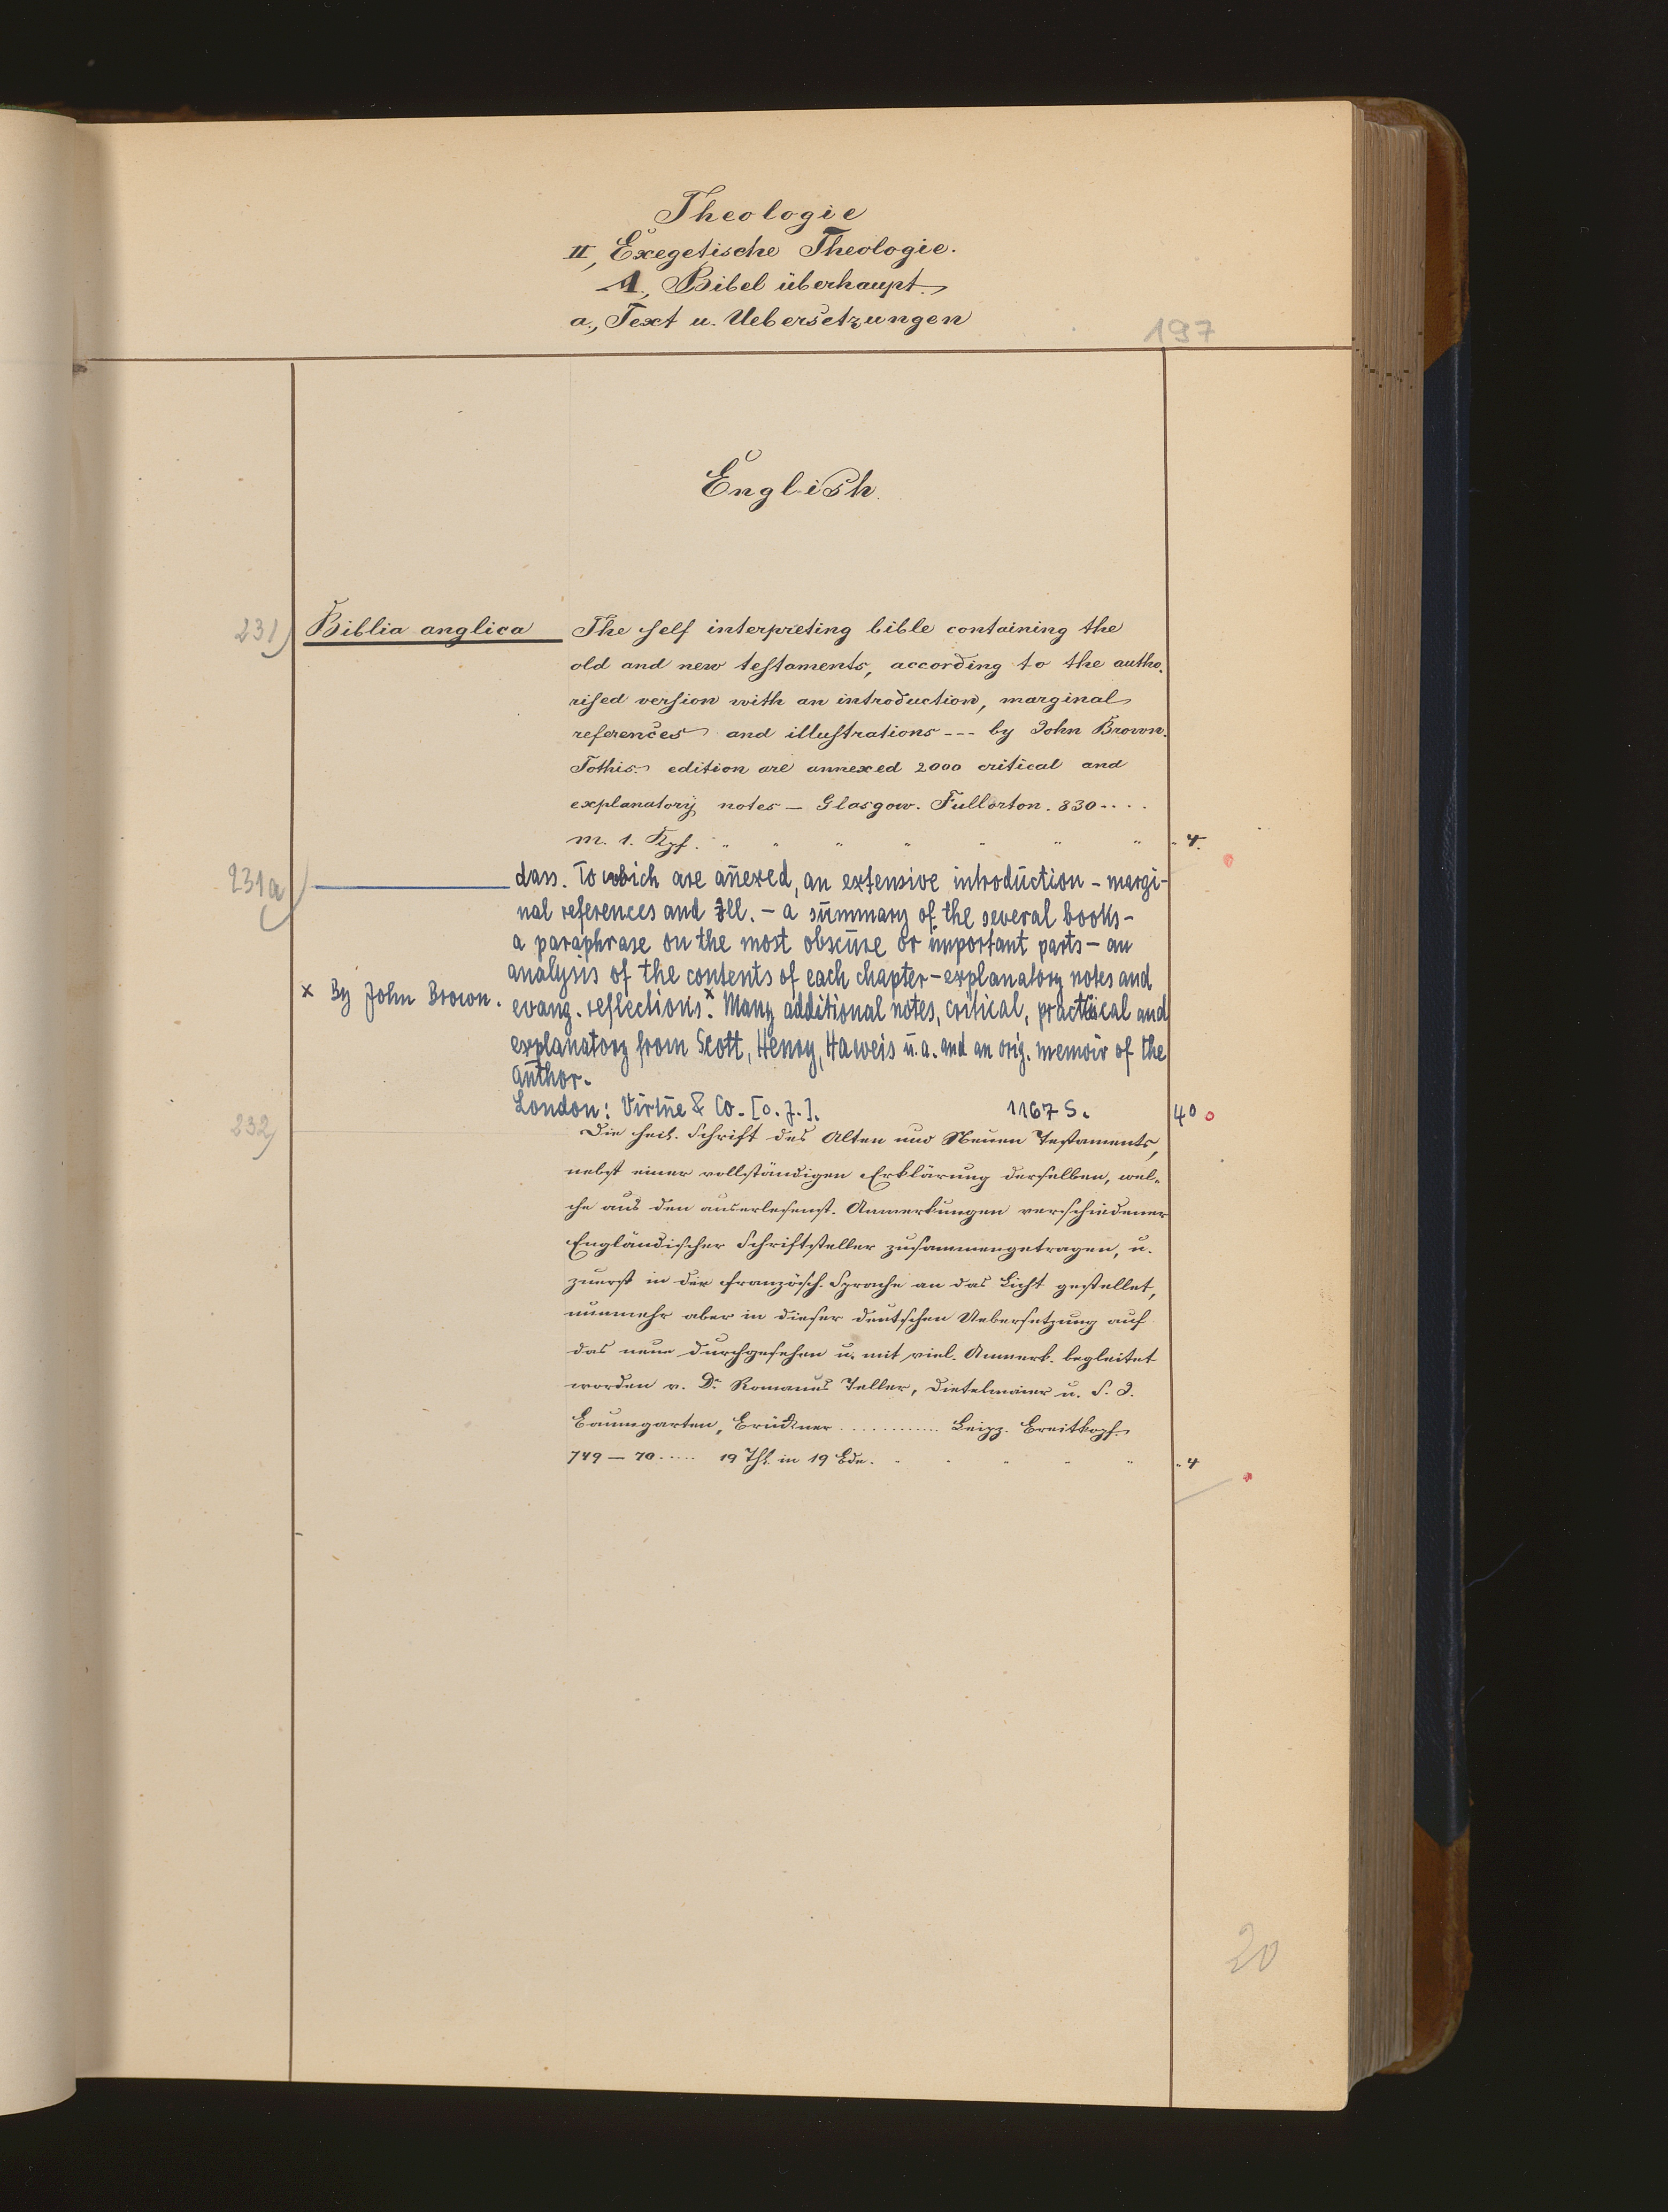 Theologie
II, Exegetische Theologie.
A., Bibel überhaupt.
a., Text u. Uebersetzungen
197
English.
231) Biblia anglica The self interpreting bible containing the
old and new testaments, according to the autho-
rised version with an introduction, marginal
references and illustrations --- by John Brown.
To this edition are annexed 2000 critical and
explanatory notes — Glasgow. Fullorton. 830 ....
m. 1. Kpf. " " " " " " " 4.
231a) dass. To which are añexed, an extensive introduction - margi-
nal references and Ill. - a summary of the several books -
a paraphrase on the most obscure or important parts - an
analysis of the contents of each chapter - explanatory notes and
x By John Brown. evang. reflections.x Many additional notes, critical, practical and
explanatory from Scott, Henry, Haweis u. a. and an orig. memoir of the
author.
London: Virtue & Co. [o. J.]. 1167 S. 40
232) Die heil. Schrift des Alten und Neuen Testaments,
nebst einer vollständigen Erklärung derselben, wel-
che aus den auserlesenst. Anmerkungen verschiedener
Engländischer Schriftsteller zusammengetragen, u.
zuerst in der französch. Sprache an das Licht gestellet,
nunmehr aber in dieser deutschen Uebersetzung auf
das neue durchgesehen u. mit viel. Anmerk. begleitet
worden v. Dr. Romanus Teller, Dietelmaier u. S. J.
Baumgarten, Brückner ............ Leipz. Breitkopf.
749 — 70 ..... 19 Thl. in 19 Bdn. " " " " " 4
20